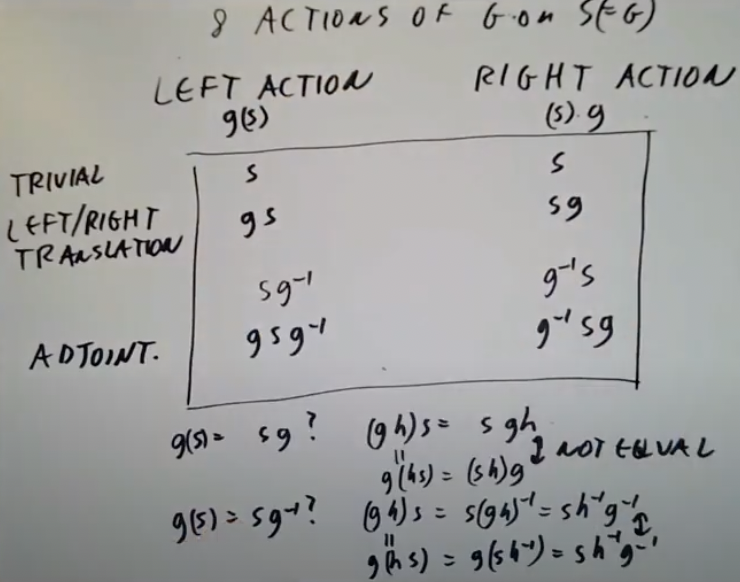 8 ACTIONS OF G on S(=G)
LEFT ACTION RIGHT ACTION
g(s) (s).g
TRIVIAL s s
LEFT/RIGHT gs sg
TRANSLATION
sg⁻¹ g⁻¹s
ADJOINT. gsg⁻¹ g⁻¹sg
g(s) = sg? (gh)s = sgh
" g(hs) = (sh)g ↕ NOT EQUAL
g(s) = sg⁻¹? (gh)s = s(gh)⁻¹ = sh⁻¹g⁻¹
" g(hs) = g(sh⁻¹) = sh⁻¹g⁻¹ ↕